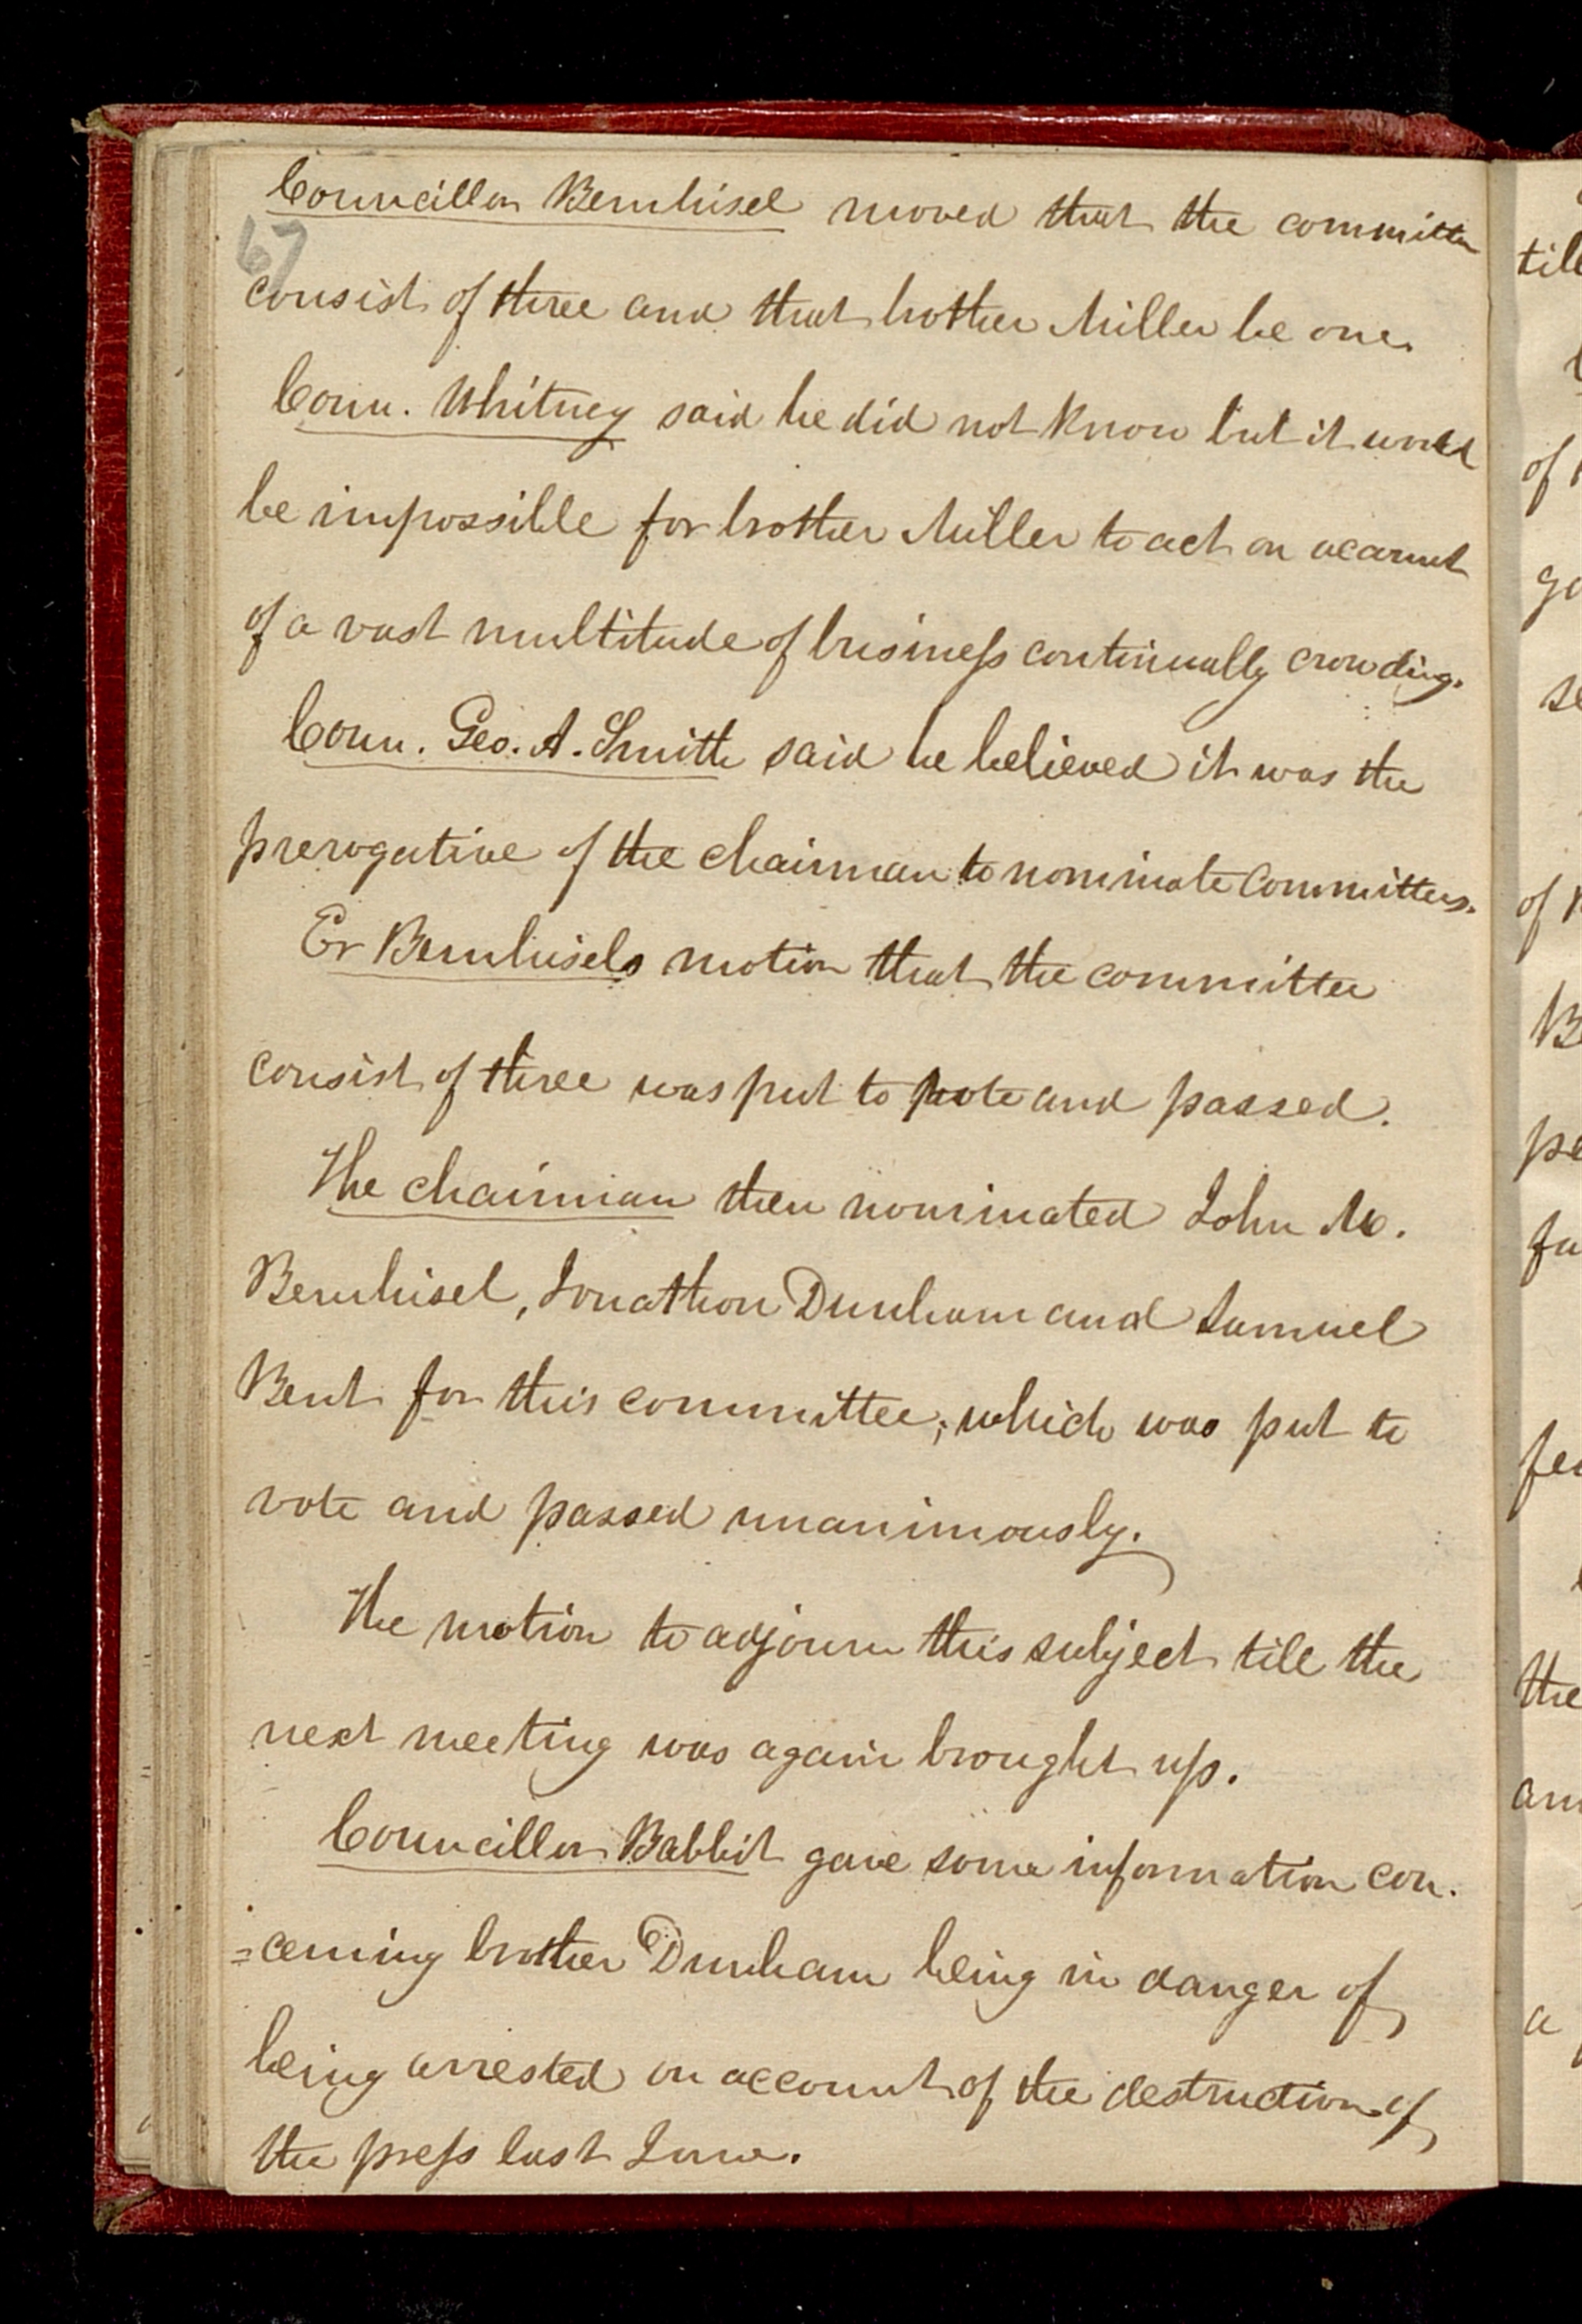 Councillor Bernhisel moved that the committee
67
consist of three and that brother Miller be one.
Coun. Whitney said he did not know but it would
be impossible for brother Miller to act on account
of a vast multitude of business continually crowding.
Coun. Geo. A. Smith said he believed it was the
prerogative of the chairman to nominate Committees.
Er Bernhisels motion that the committee
consist of three was put to vote and passed.
The chairman then nominated John M.
Bernhisel, Jonathon Dunham and Samuel
Bent for this committee, which was put to
vote and passed unanimously.
The motion to adjourn this subject till the
next meeting was again brought up.
Councillor Babbit gave some information con-
=cerning brother Dunham being in danger of
being arrested on account of the destruction of
the press last June.
till
of
of
the
a